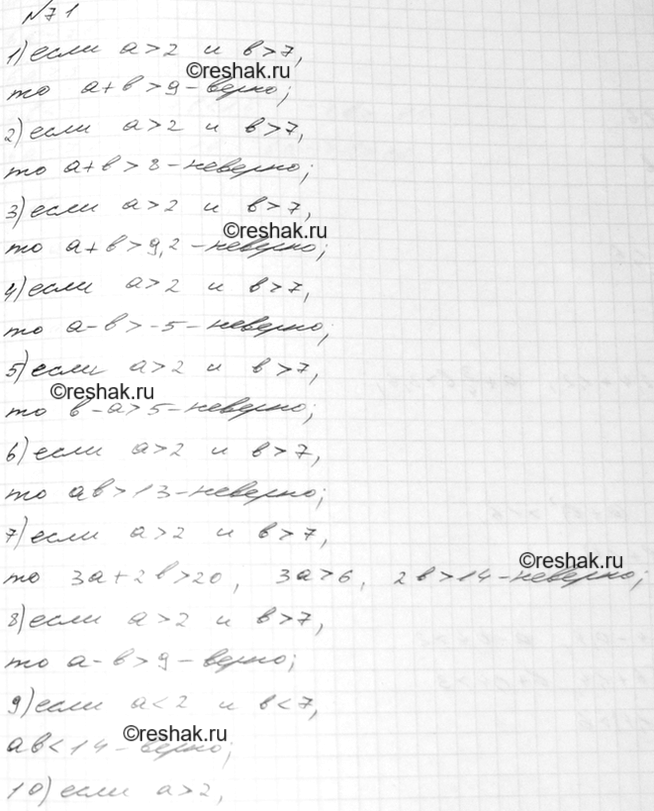 №71
1) если a>2 и в>7,
©reshak.ru
то a+в>9 - верно;
2) если a>2 и в>7,
то a+в>8 - неверно;
3) если a>2 и в>7,
©reshak.ru
то a+в>9,2 - неверно;
4) если a>2 и в>7,
то a-в>-5 - неверно;
5) если a>2 и в>7,
©reshak.ru
то в-a>5 - неверно;
6) если a>2 и в>7,
то aв>13 - неверно;
7) если a>2 и в>7,
©reshak.ru
то 3a+2в>20, 3a>6, 2в>14 - неверно;
8) если a>2 и в>7,
то a-в>9 - верно;
9) если a<2 и в<7,
©reshak.ru
aв<14 - верно;
10) если a>2,